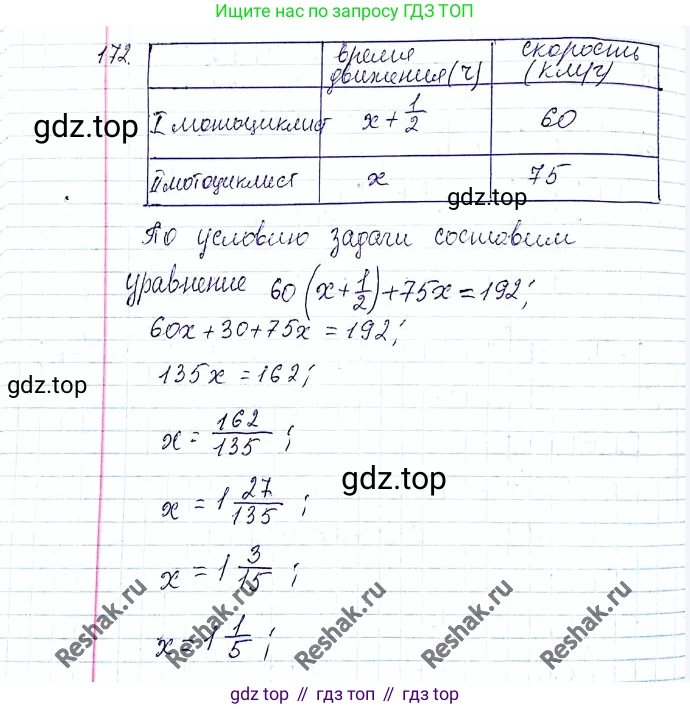 Ищите нас по запросу ГДЗ ТОП
172.
время движения (ч)
скорость (км/ч)
I мотоциклист x + 1/2 60
gdz.top
II мотоциклист x 75
gdz.top
По условию задачи составим
уравнение 60 (x + 1/2) + 75x = 192;
60x + 30 + 75x = 192;
gdz.top
135x = 162;
x = 162/135 ;
gdz.top
x = 1 27/135 ;
x = 1 3/15 ;
x = 1 1/5 ;
Reshak.ru Reshak.ru Reshak.ru Reshak.ru Reshak.ru
gdz top // гдз топ // гдз top